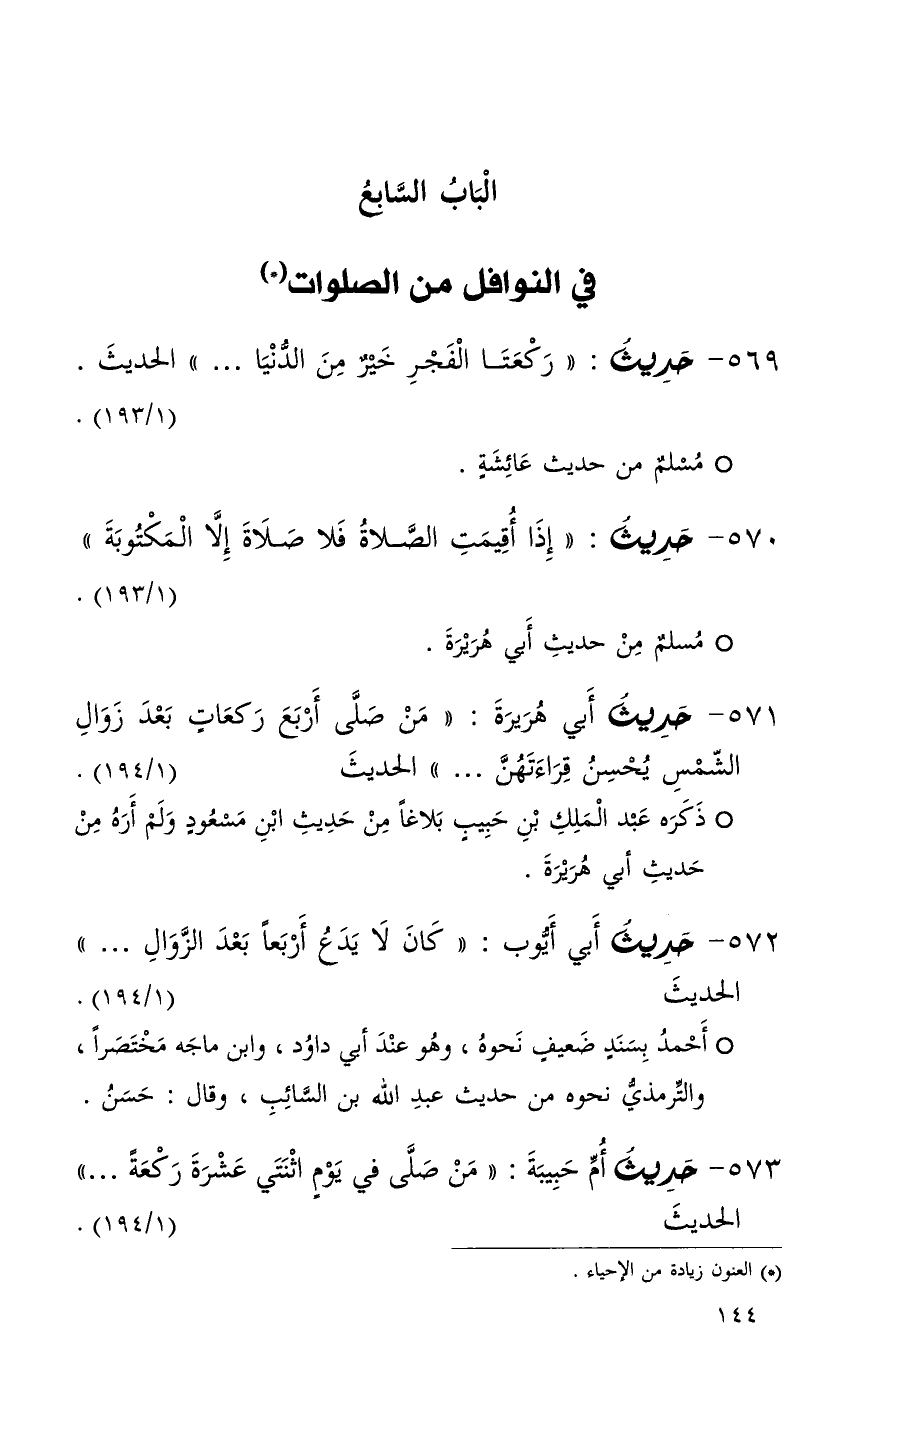 الْبَابُ السَّابِعُ
في النوافل من الصلوات(*)
٥٦٩- حَدِيثُ : « رَكْعَتَا الْفَجْرِ خَيْرٌ مِنَ الدُّنْيَا ... » الحديثَ .
(١٩٣/١) .
○ مُسْلمٌ من حديث عَائِشَةٍ .
٥٧٠- حَدِيثُ : « إِذَا أُقِيمَتِ الصَّلاةُ فَلا صَلَاةَ إِلَّا الْمَكْتُوبَةَ »
(١٩٣/١) .
○ مُسلمٌ مِنْ حديثِ أَبي هُرَيْرَةَ .
٥٧١- حَدِيثُ أَبي هُرَيرَةَ : « مَنْ صَلَّى أَرْبَعَ رَكعَاتٍ بَعْدَ زَوَالِ
الشَّمْسِ يُحْسِنُ قِرَاءَتَهُنَّ ... » الحديثَ (١٩٤/١) .
○ ذَكَرَه عَبْد الْمَلِكِ بْنِ حَبِيبٍ بَلاغاً مِنْ حَدِيثِ ابْنِ مَسْعُودٍ وَلَمْ أَرَهُ مِنْ
حَديثِ أبي هُرَيْرَةَ .
٥٧٢- حَدِيثُ أَبي أَيُّوب : « كَانَ لَا يَدَعُ أَرْبَعاً بَعْدَ الزَّوَالِ ... »
الحديثَ (١٩٤/١) .
○ أَحْمدُ بِسَنَدٍ ضَعيفٍ نَحوهُ ، وهُو عنْدَ أبي داوُد ، وابن ماجَه مَخْتَصَراً ،
والتِّرمذيُّ نحوه من حديث عبدِ الله بن السَّائِبِ ، وقال : حَسَنُ .
٥٧٣- حَدِيثُ أُمِّ حَبِيبَةَ : « مَنْ صَلَّى في يَوْمٍ اثْنَتَي عَشْرَةَ رَكْعَةً ...»
الحديثَ (١٩٤/١) .
(*) العنون زيادة من الإحياء .
١٤٤